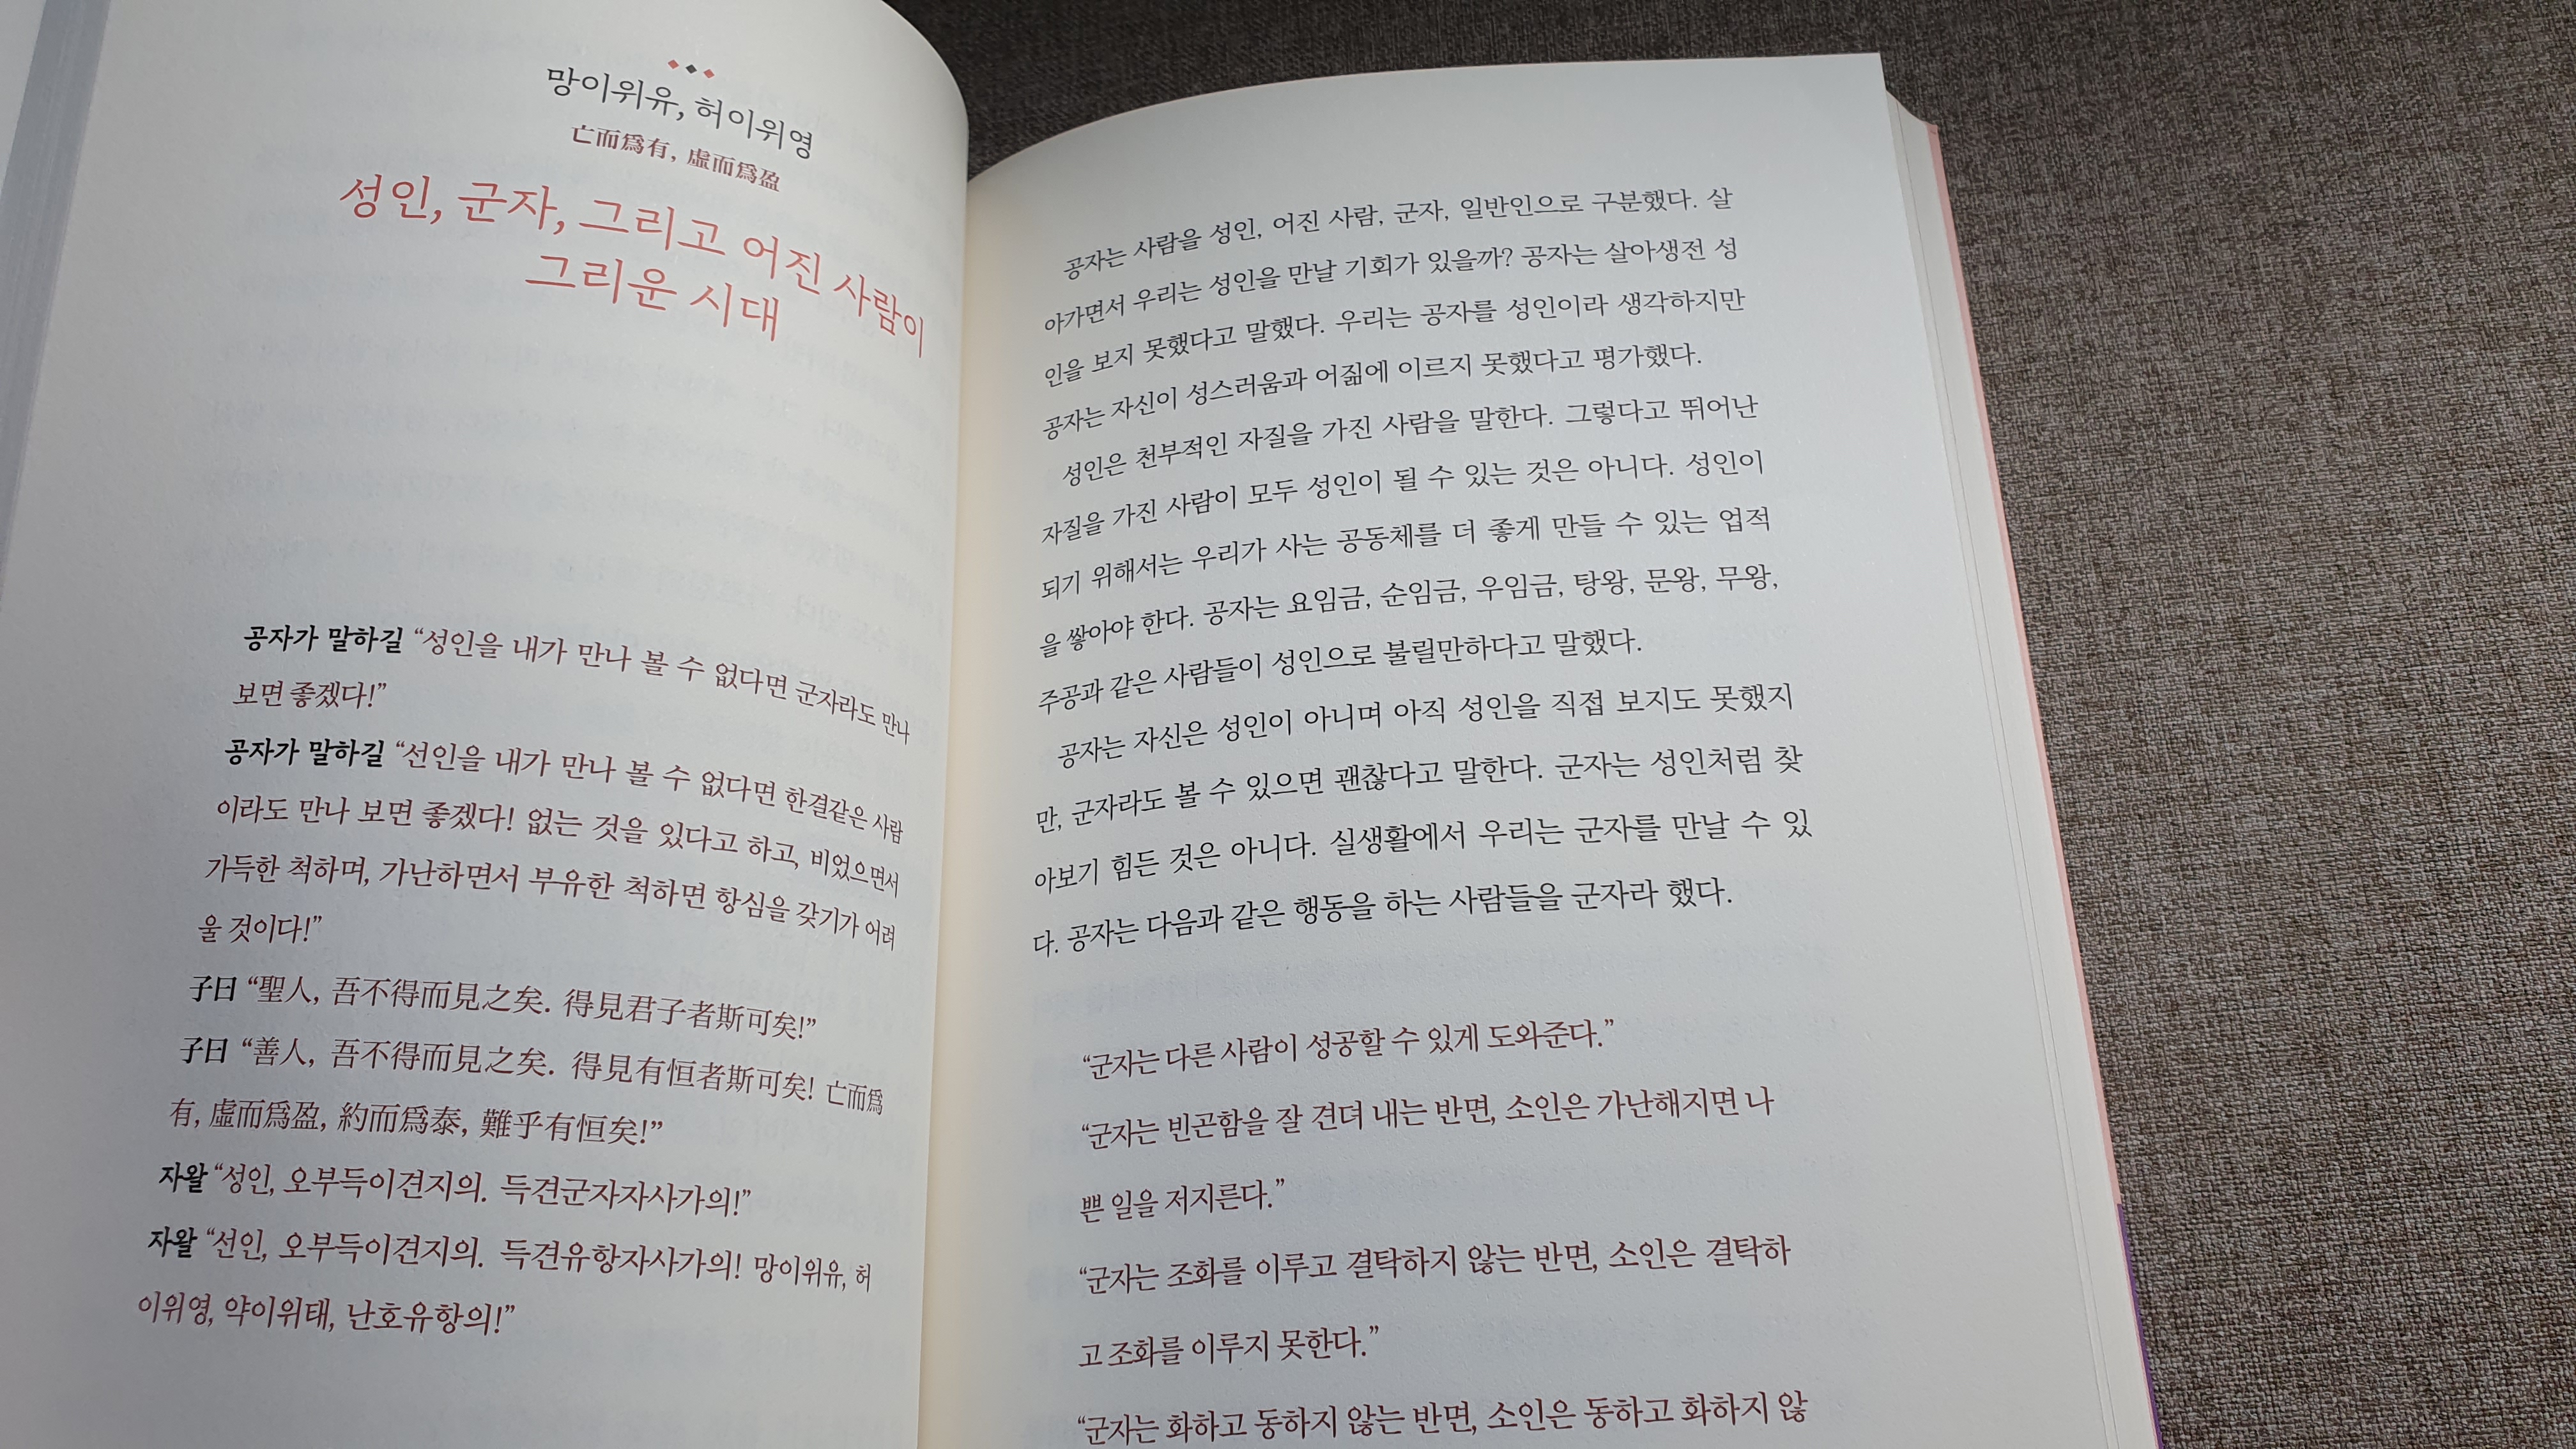 망이위유, 허이위영
亡而爲有, 虛而爲盈
성인, 군자, 그리고 어진 사람이
그리운 시대
공자가 말하길 “성인을 내가 만나 볼 수 없다면 군자라도 만나
보면 좋겠다!”
공자가 말하길 “선인을 내가 만나 볼 수 없다면 한결같은 사람
이라도 만나 보면 좋겠다! 없는 것을 있다고 하고, 비었으면서
가득한 척하며, 가난하면서 부유한 척하면 항심을 갖기가 어려
울 것이다!”
子曰 “聖人, 吾不得而見之矣. 得見君子者斯可矣!”
子曰 “善人, 吾不得而見之矣. 得見有恒者斯可矣! 亡而爲
有, 虛而爲盈, 約而爲泰, 難乎有恒矣!”
자왈 “성인, 오부득이견지의. 득견군자자사가의!”
자왈 “선인, 오부득이견지의. 득견유항자사가의! 망이위유, 허
이위영, 약이위태, 난호유항의!”
공자는 사람을 성인, 어진 사람, 군자, 일반인으로 구분했다. 살
아가면서 우리는 성인을 만날 기회가 있을까? 공자는 살아생전 성
인을 보지 못했다고 말했다. 우리는 공자를 성인이라 생각하지만
공자는 자신이 성스러움과 어짊에 이르지 못했다고 평가했다.
성인은 천부적인 자질을 가진 사람을 말한다. 그렇다고 뛰어난
자질을 가진 사람이 모두 성인이 될 수 있는 것은 아니다. 성인이
되기 위해서는 우리가 사는 공동체를 더 좋게 만들 수 있는 업적
을 쌓아야 한다. 공자는 요임금, 순임금, 우임금, 탕왕, 문왕, 무왕,
주공과 같은 사람들이 성인으로 불릴만하다고 말했다.
공자는 자신은 성인이 아니며 아직 성인을 직접 보지도 못했지
만, 군자라도 볼 수 있으면 괜찮다고 말한다. 군자는 성인처럼 찾
아보기 힘든 것은 아니다. 실생활에서 우리는 군자를 만날 수 있
다. 공자는 다음과 같은 행동을 하는 사람들을 군자라 했다.
“군자는 다른 사람이 성공할 수 있게 도와준다.”
“군자는 빈곤함을 잘 견뎌 내는 반면, 소인은 가난해지면 나
쁜 일을 저지른다.”
“군자는 조화를 이루고 결탁하지 않는 반면, 소인은 결탁하
고 조화를 이루지 못한다.”
“군자는 화하고 동하지 않는 반면, 소인은 동하고 화하지 않